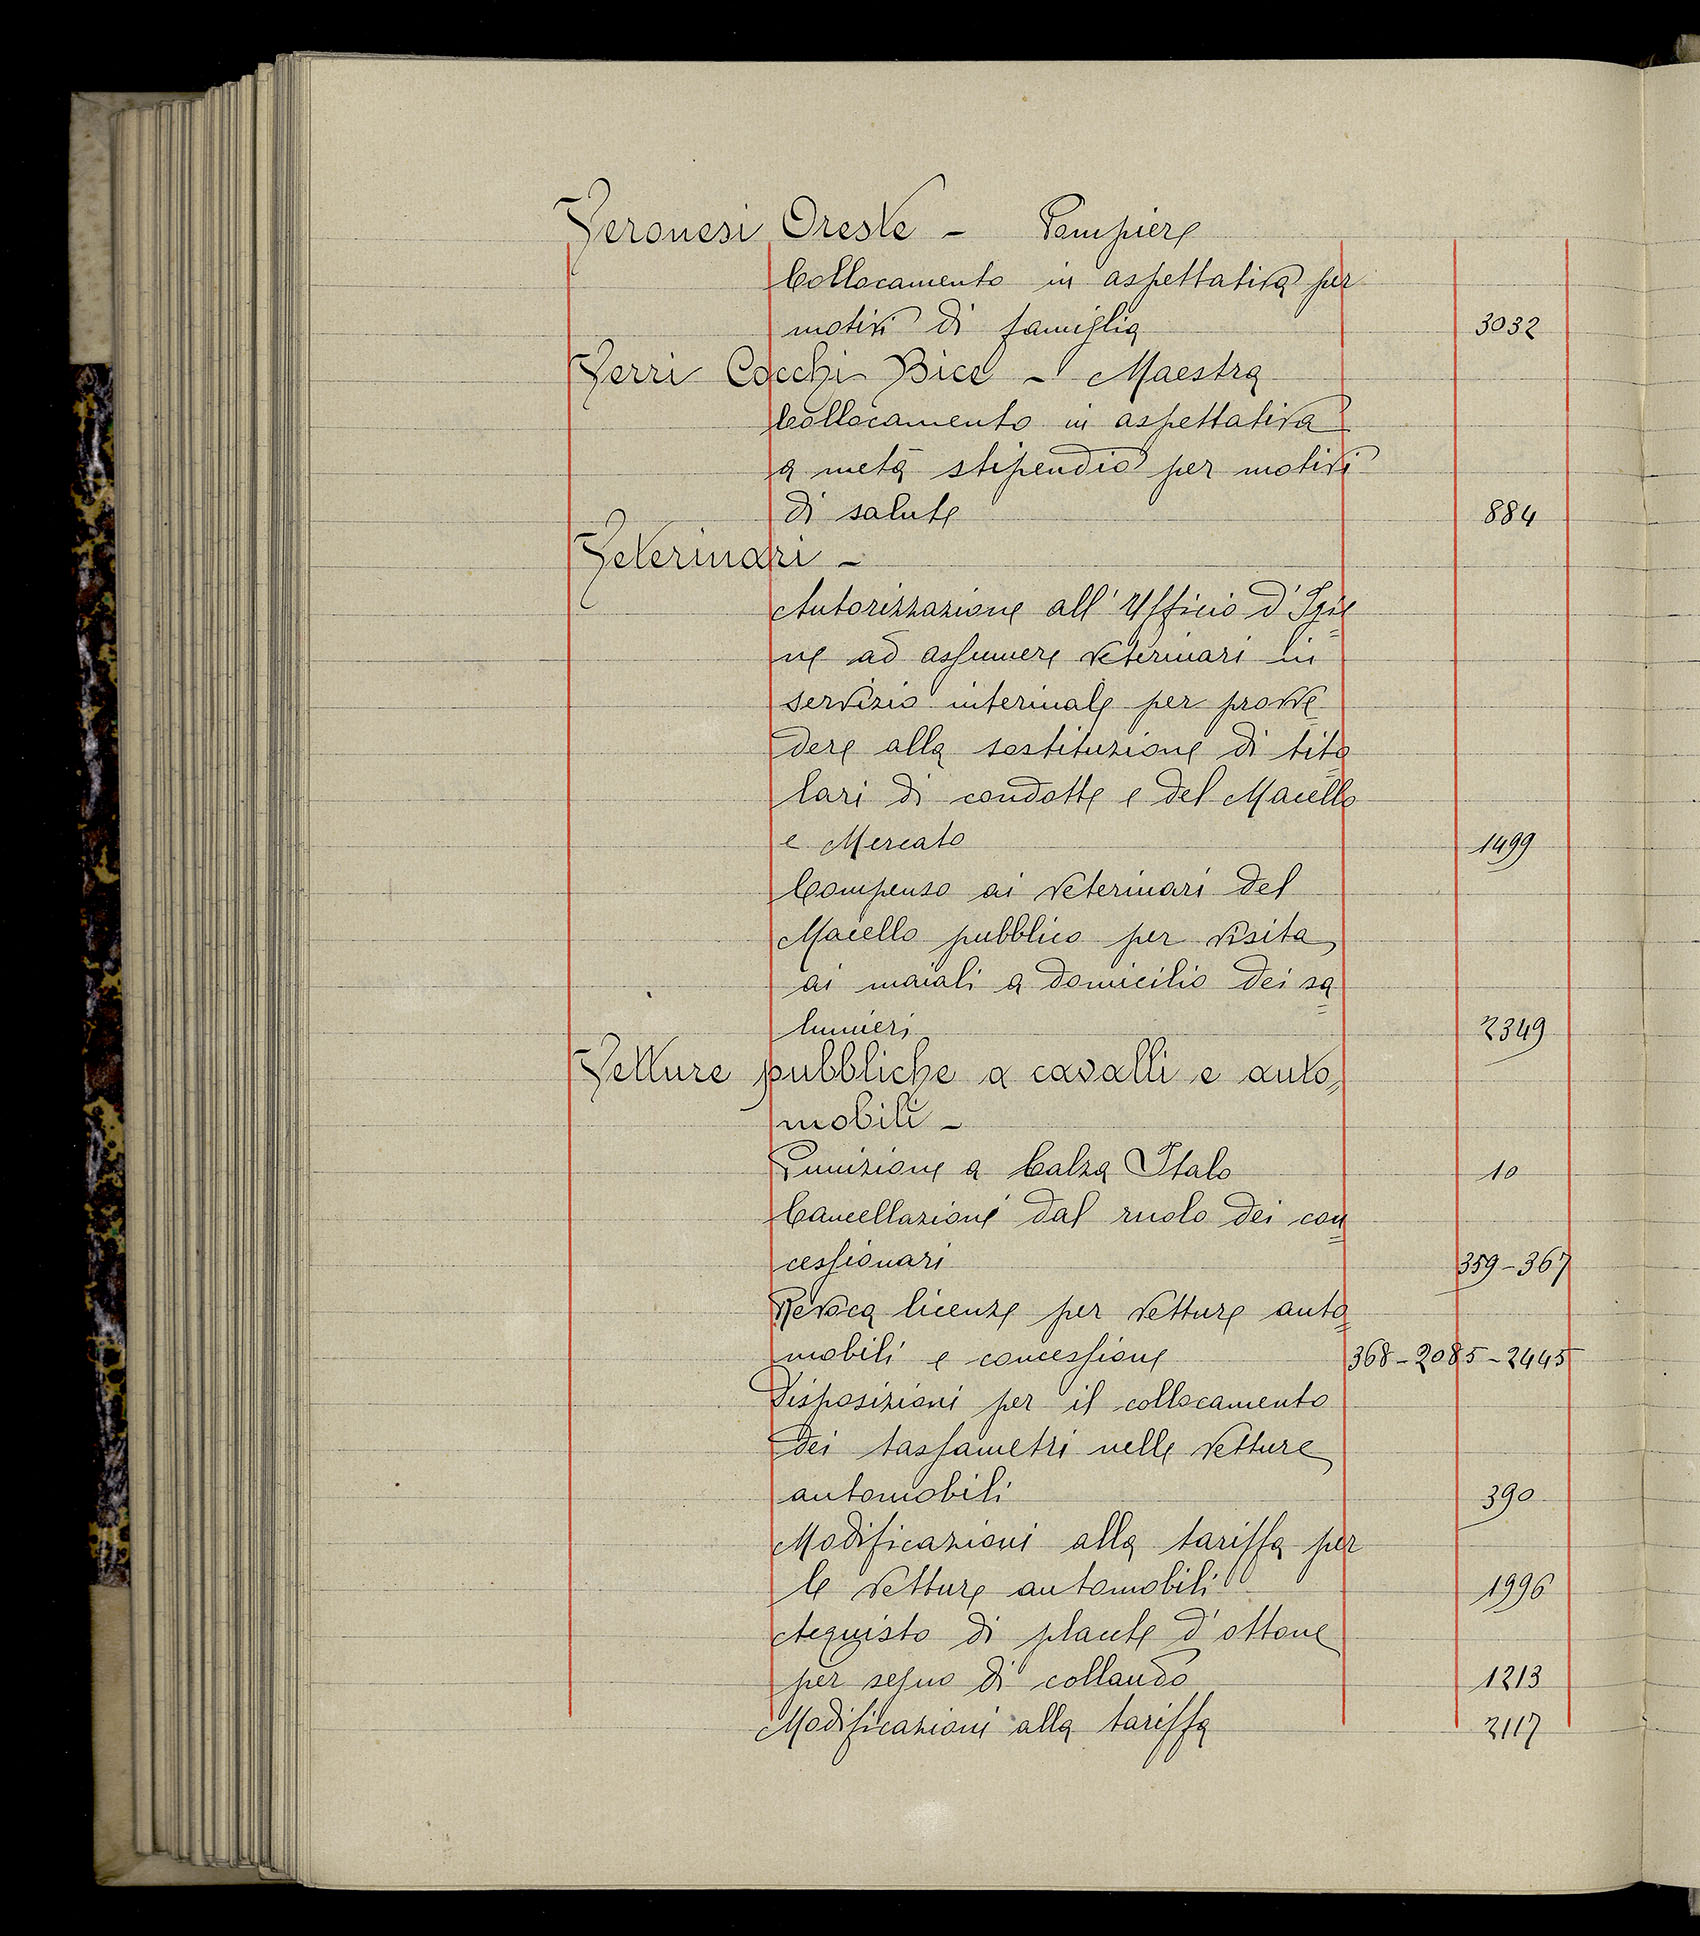 Veronesi Oreste - Pompiere
Collocamento in aspettativa per
motivi di famiglia 3032
Verri Cocchi Bice - Maestra
Collocamento in aspettativa
a metà stipendio per motivi
di salute 884
Veterinari -
Autorizzazione all'Ufficio d'Igie=
ne ad assumere veterinari in
servizio interinale per provve=
dere alla sostituzione di tito=
lari di condotte e del Macello
e Mercato 1499
Compenso ai veterinari del
Macello pubblico per visita
ai maiali a domicilio dei sa=
lumieri 2349
Vetture pubbliche a cavalli e auto=
mobili -
Punizione a Calza Italo 10
Cancellazione dal ruolo dei con=
cessionari 359-367
Revoca licenze per vetture auto=
mobili e concessione 368-2085-2445
Disposizioni per il collocamento
dei tassametri nelle vetture
automobili 390
Modificazioni alla tariffa per
le vetture automobili 1996
Acquisto di placche d'ottone
per segno di collaudo 1213
Modificazioni alla tariffa 2117